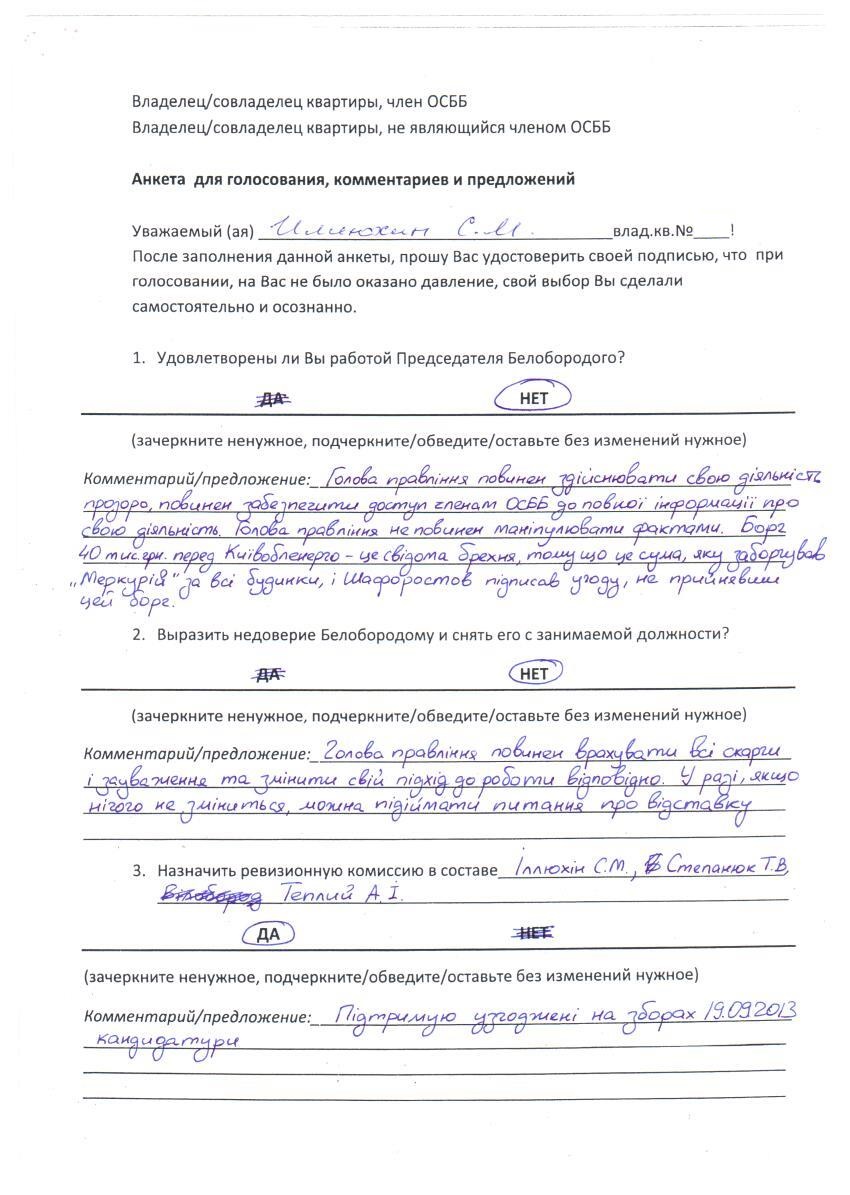 Владелец/совладелец квартиры, член ОСББ
Владелец/совладелец квартиры, не являющийся членом ОСББ
Анкета для голосования, комментариев и предложений
Уважаемый (ая) Илинохин С.М. влад.кв.№____!
После заполнения данной анкеты, прошу Вас удостоверить своей подписью, что при
голосовании, на Вас не было оказано давление, свой выбор Вы сделали
самостоятельно и осознанно.
1. Удовлетворены ли Вы работой Председателя Белобородого?
ДА НЕТ
(зачеркните ненужное, подчеркните/обведите/оставьте без изменений нужное)
Комментарий/предложение: Голова правління повинен здійснювати свою діяльність
прозоро, повинен забезпечити доступ членам ОСББ до повної інформації про
свою діяльність. Голова правління не повинен маніпулювати фактами. Борг
40 тис.грн. перед Київобленерго - це свідома брехня, тому що це сума, яку заборгував
„Меркурій" за всі будинки, і Шафоростов підписав угоду, не прийнявши
цей борг.
2. Выразить недоверие Белобородому и снять его с занимаемой должности?
ДА НЕТ
(зачеркните ненужное, подчеркните/обведите/оставьте без изменений нужное)
Комментарий/предложение: Голова правління повинен врахувати всі скарги
і зауваження та змінити свій підхід до роботи відповідно. У разі, якщо
нічого не зміниться, можна підіймати питання про відставку
3. Назначить ревизионную комиссию в составе Іллюхін С.М., Степанюк Т.В,
Теплий А.І.
ДА НЕТ
(зачеркните ненужное, подчеркните/обведите/оставьте без изменений нужное)
Комментарий/предложение: Підтримую узгоджені на зборах 19.09.2013
кандидатури